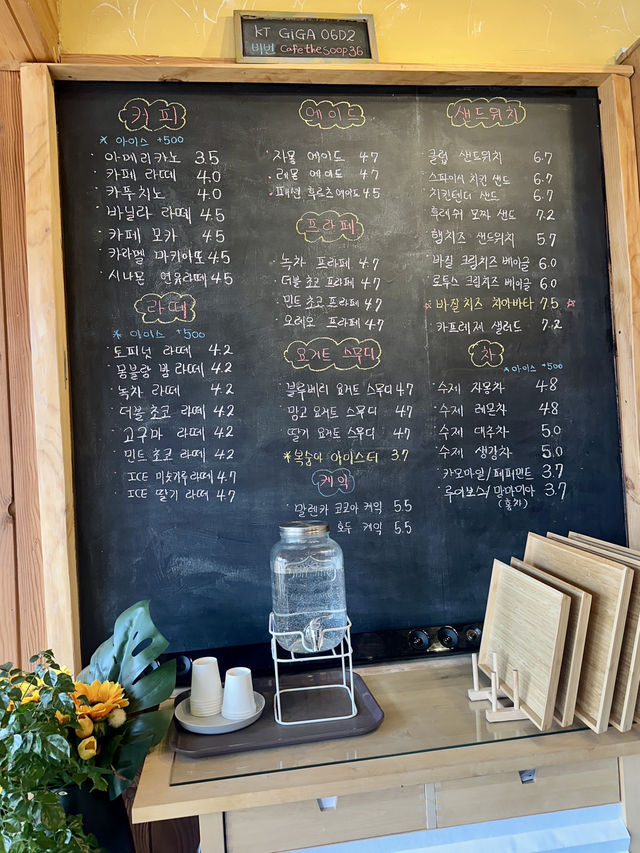 KT GIGA 06D2
비번 cafethesoop36
커피
* 아이스 +500
아메리카노 3.5
카페 라떼 4.0
카푸치노 4.0
바닐라 라떼 4.5
카페 모카 4.5
카라멜 마키아또 4.5
시나몬 연유라떼 4.5
라떼
* 아이스 +500
토피넛 라떼 4.2
몽블랑 밤 라떼 4.2
녹차 라떼 4.2
더블 초코 라떼 4.2
고구마 라떼 4.2
민트 초코 라떼 4.2
ICE 미숫가루 라떼 4.7
ICE 딸기 라떼 4.7
에이드
자몽 에이드 4.7
레몬 에이드 4.7
패션 후르츠 에이드 4.5
프라페
녹차 프라페 4.7
더블 초코 프라페 4.7
민트 초코 프라페 4.7
오레오 프라페 4.7
요거트 스무디
블루베리 요거트 스무디 4.7
망고 요거트 스무디 4.7
딸기 요거트 스무디 4.7
*복숭아 아이스티 3.7
케익
말렌카 코코아 케익 5.5
호두 케익 5.5
샌드위치
클럽 샌드위치 6.7
스파이시 치킨 샌드 6.7
치킨텐더 샌드 6.7
후레쉬 모짜 샌드 7.2
햄치즈 샌드위치 5.7
바질 크림치즈 베이글 6.0
로투스 크림치즈 베이글 6.0
바질치즈 치아바타 7.5
카프레제 샐러드 7.2
차
* 아이스 +500
수제 자몽차 4.8
수제 레몬차 4.8
수제 대추차 5.0
수제 생강차 5.0
카모마일/페퍼민트 3.7
루이보스/얼그레이 3.7
(홍차)